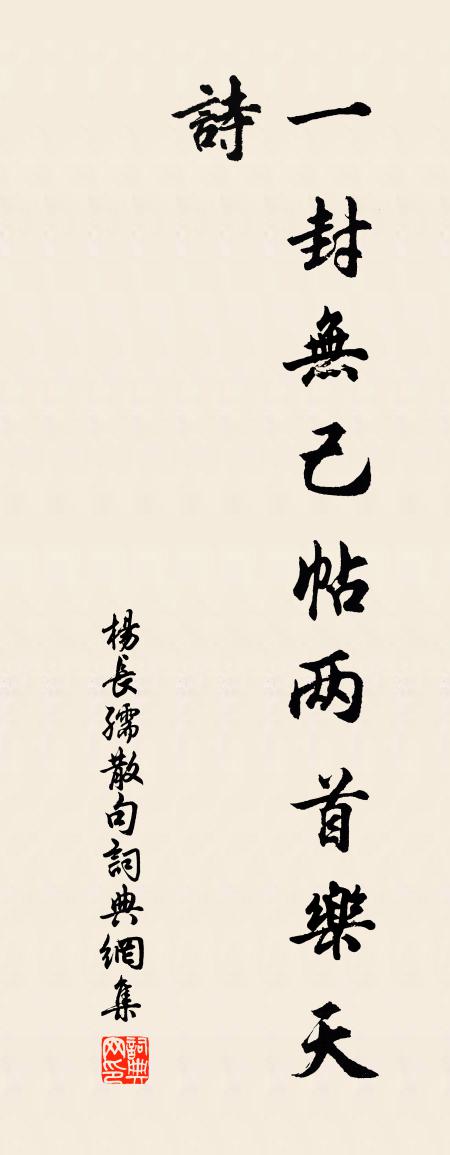 一封無己帖两首樂天
詩
楊長孺散句詞典網集
詞典网印